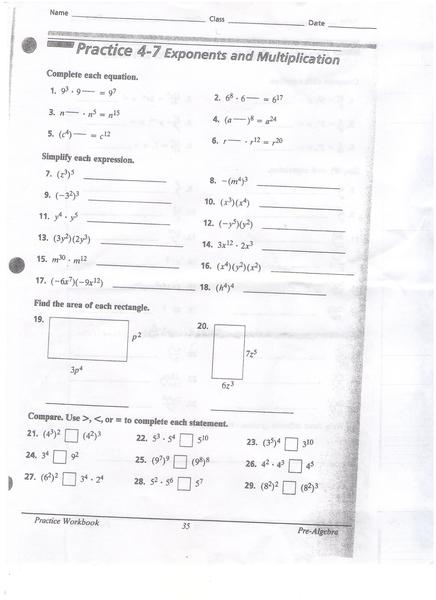 Name ______ Class ______ Date ______
Practice 4-7 Exponents and Multiplication
Complete each equation.
1. 9³ · 9— = 9⁷ 2. 6⁸ · 6— = 6¹⁷
3. n— · n⁵ = n¹⁵ 4. (a—)⁸ = a²⁴
5. (c⁴)— = c¹² 6. r— · r¹² = r²⁰
Simplify each expression.
7. (z³)⁵ ______ 8. −(m⁴)³ ______
9. (−3²)³ ______ 10. (x³)(x⁴) ______
11. y⁴ · y⁵ ______ 12. (−y⁵)(y²) ______
13. (3y²)(2y³) ______ 14. 3x¹² · 2x³ ______
15. m³⁰ · m¹² ______ 16. (x⁴)(y²)(x²) ______
17. (−6x⁷)(−9x¹²) ______ 18. (h⁴)⁴ ______
Find the area of each rectangle.
19. 20.
p² 7z⁵
3p⁴ 6z³
Compare. Use >, <, or = to complete each statement.
21. (4³)² □ (4²)³ 22. 5³ · 5⁴ □ 5¹⁰ 23. (3⁵)⁴ □ 3¹⁰
24. 3⁴ □ 9² 25. (9⁷)⁹ □ (9⁸)⁸ 26. 4² · 4³ □ 4⁵
27. (6²)² □ 3⁴ · 2⁴ 28. 5² · 5⁶ □ 5⁷ 29. (8²)² □ (8²)³
Practice Workbook 35 Pre-Algebra